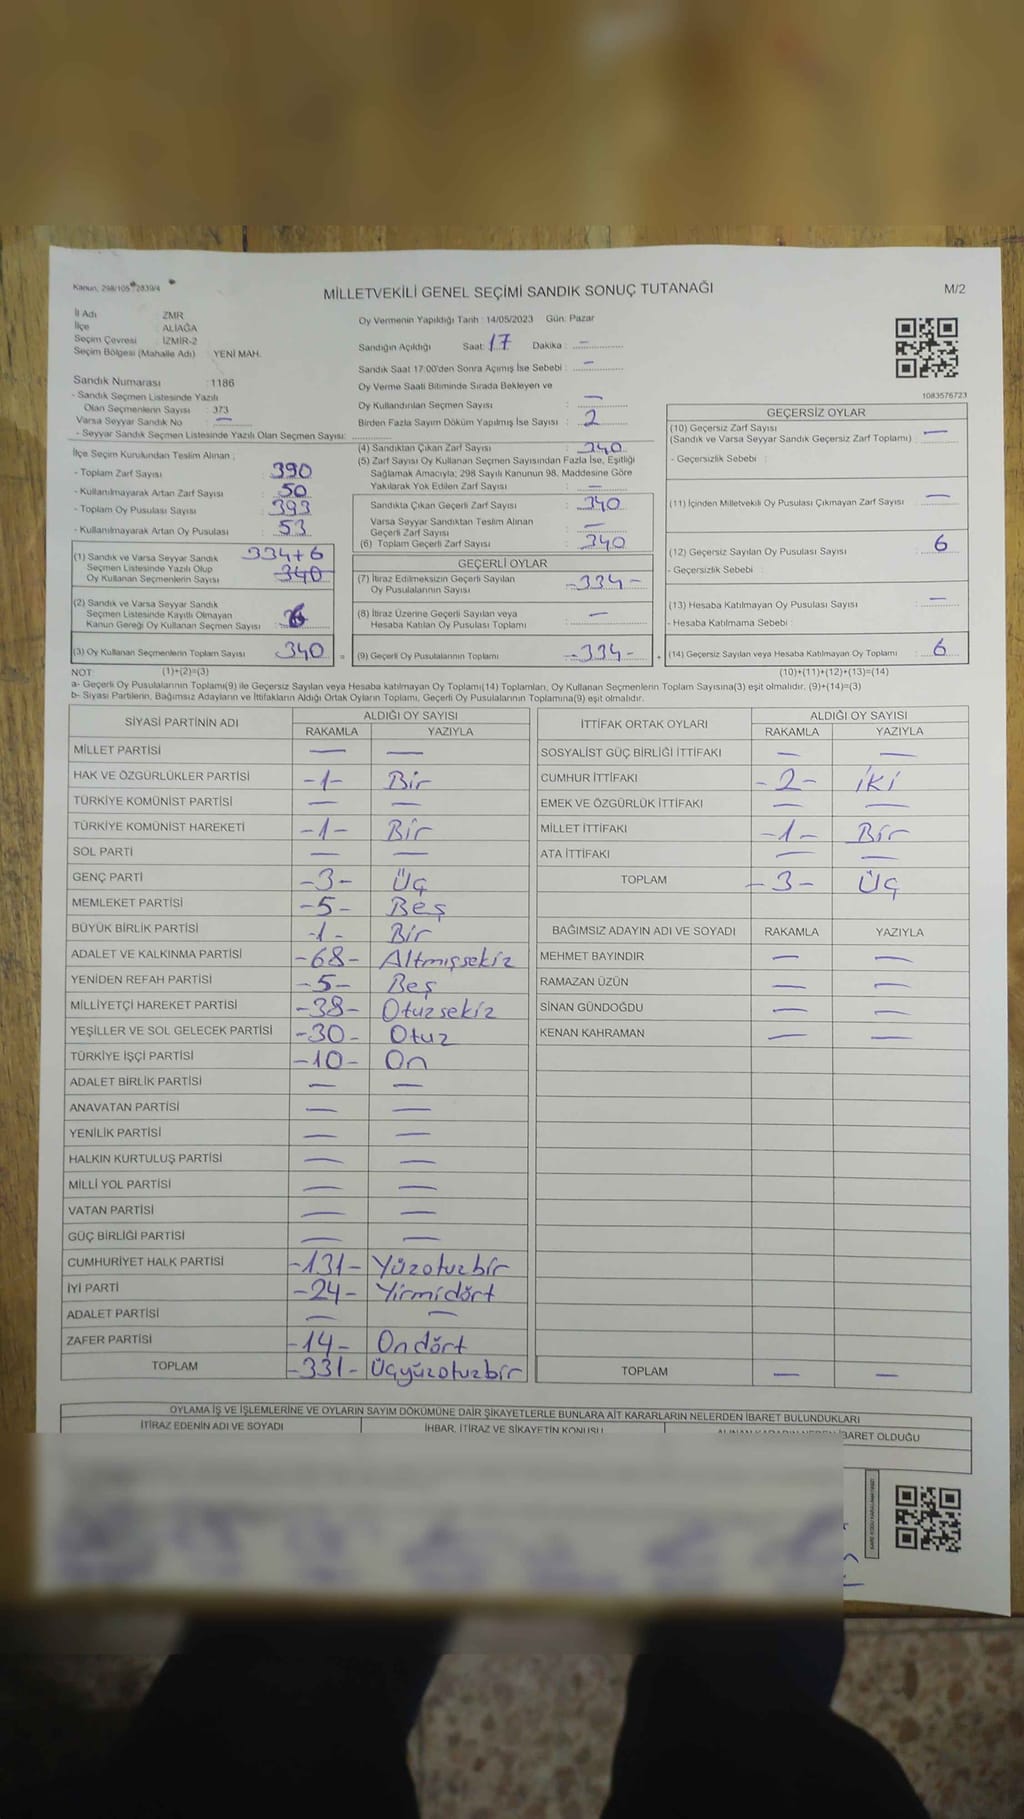 Kanun, 298/105 2839/4
MİLLETVEKİLİ GENEL SEÇİMİ SANDIK SONUÇ TUTANAĞI
M/2
İl Adı ZMR
İlçe ALİAĞA
Seçim Çevresi : İZMİR-2
Seçim Bölgesi (Mahalle Adı) YENİ MAH.
Sandık Numarası : 1186
- Sandık Seçmen Listesinde Yazılı
Olan Seçmenlerin Sayısı : 373
Varsa Seyyar Sandık No —
- Seyyar Sandık Seçmen Listesinde Yazılı Olan Seçmen Sayısı:
Oy Vermenin Yapıldığı Tarih : 14/05/2023 Gün: Pazar
Sandığın Açıldığı Saat: 17 Dakika : —
Sandık Saat 17:00'den Sonra Açımış İse Sebebi : —
Oy Verme Saati Bitiminde Sırada Bekleyen ve
Oy Kullandırılan Seçmen Sayısı : —
Birden Fazla Sayım Döküm Yapılmış İse Sayısı : 2
1083576723
İlçe Seçim Kurulundan Teslim Alınan ;
- Toplam Zarf Sayısı : 390
- Kullanılmayarak Artan Zarf Sayısı : 50
- Toplam Oy Pusulası Sayısı : 393
- Kullanılmayarak Artan Oy Pusulası : 53
(1) Sandık ve Varsa Seyyar Sandık 334+6
Seçmen Listesinde Yazılı Olup 340
Oy Kullanan Seçmenlerin Sayısı
(2) Sandık ve Varsa Seyyar Sandık
Seçmen Listesinde Kayıtlı Olmayan
Kanun Gereği Oy Kullanan Seçmen Sayısı :
(3) Oy Kullanan Seçmenlerin Toplam Sayısı 340 =
(4) Sandıktan Çıkan Zarf Sayısı : 340
(5) Zarf Sayısı Oy Kullanan Seçmen Sayısından Fazla İse, Eşitliği
Sağlamak Amacıyla; 298 Sayılı Kanunun 98. Maddesine Göre
Yakılarak Yok Edilen Zarf Sayısı : —
Sandıkta Çıkan Geçerli Zarf Sayısı : 340
Varsa Seyyar Sandıktan Teslim Alınan
Geçerli Zarf Sayısı : —
(6) Toplam Geçerli Zarf Sayısı : 340
GEÇERLİ OYLAR
(7) İtiraz Edilmeksizin Geçerli Sayılan
Oy Pusulalarının Sayısı : -334-
(8) İtiraz Üzerine Geçerli Sayılan veya
Hesaba Katılan Oy Pusulası Toplamı : —
(9) Geçerli Oy Pusulalarının Toplamı -334- +
GEÇERSİZ OYLAR
(10) Geçersiz Zarf Sayısı
(Sandık ve Varsa Seyyar Sandık Geçersiz Zarf Toplamı) : —
- Geçersizlik Sebebi :
(11) İçinden Milletvekili Oy Pusulası Çıkmayan Zarf Sayısı : —
(12) Geçersiz Sayılan Oy Pusulası Sayısı : 6
- Geçersizlik Sebebi :
(13) Hesaba Katılmayan Oy Pusulası Sayısı : —
- Hesaba Katılmama Sebebi :
(14) Geçersiz Sayılan veya Hesaba Katılmayan Oy Toplamı : 6
NOT : (1)+(2)=(3) (10)+(11)+(12)+(13)=(14)
a- Geçerli Oy Pusulalarının Toplamı(9) ile Geçersiz Sayılan veya Hesaba katılmayan Oy Toplamı(14) Toplamları, Oy Kullanan Seçmenlerin Toplam Sayısına(3) eşit olmalıdır. (9)+(14)=(3)
b- Siyasi Partilerin, Bağımsız Adayların ve İttifakların Aldığı Ortak Oyların Toplamı, Geçerli Oy Pusulalarının Toplamına(9) eşit olmalıdır.
SİYASİ PARTİNİN ADI ALDIĞI OY SAYISI
RAKAMLA YAZIYLA
MİLLET PARTİSİ — —
HAK VE ÖZGÜRLÜKLER PARTİSİ -1- Bir
TÜRKİYE KOMÜNİST PARTİSİ — —
TÜRKİYE KOMÜNİST HAREKETİ -1- Bir
SOL PARTİ — —
GENÇ PARTİ -3- Üç
MEMLEKET PARTİSİ -5- Beş
BÜYÜK BİRLİK PARTİSİ -1- Bir
ADALET VE KALKINMA PARTİSİ -68- Altmışsekiz
YENİDEN REFAH PARTİSİ -5- Beş
MİLLİYETÇİ HAREKET PARTİSİ -38- Otuzsekiz
YEŞİLLER VE SOL GELECEK PARTİSİ -30- Otuz
TÜRKİYE İŞÇİ PARTİSİ -10- On
ADALET BİRLİK PARTİSİ — —
ANAVATAN PARTİSİ — —
YENİLİK PARTİSİ — —
HALKIN KURTULUŞ PARTİSİ — —
MİLLİ YOL PARTİSİ — —
VATAN PARTİSİ — —
GÜÇ BİRLİĞİ PARTİSİ — —
CUMHURİYET HALK PARTİSİ -131- Yüzotuzbir
İYİ PARTİ -24- Yirmidört
ADALET PARTİSİ — —
ZAFER PARTİSİ -14- Ondört
TOPLAM -331- Üçyüzotuzbir
İTTİFAK ORTAK OYLARI ALDIĞI OY SAYISI
RAKAMLA YAZIYLA
SOSYALİST GÜÇ BİRLİĞİ İTTİFAKI — —
CUMHUR İTTİFAKI -2- İki
EMEK VE ÖZGÜRLÜK İTTİFAKI — —
MİLLET İTTİFAKI -1- Bir
ATA İTTİFAKI — —
TOPLAM -3- Üç
BAĞIMSIZ ADAYIN ADI VE SOYADI RAKAMLA YAZIYLA
MEHMET BAYINDIR — —
RAMAZAN ÜZÜN — —
SİNAN GÜNDOĞDU — —
KENAN KAHRAMAN — —
TOPLAM — —
OYLAMA İŞ VE İŞLEMLERİNE VE OYLARIN SAYIM DÖKÜMÜNE DAİR ŞİKAYETLERLE BUNLARA AİT KARARLARIN NELERDEN İBARET BULUNDUKLARI
İTİRAZ EDENİN ADI VE SOYADI İHBAR, İTİRAZ VE ŞİKAYETİN KONUSU İBARET OLDUĞU